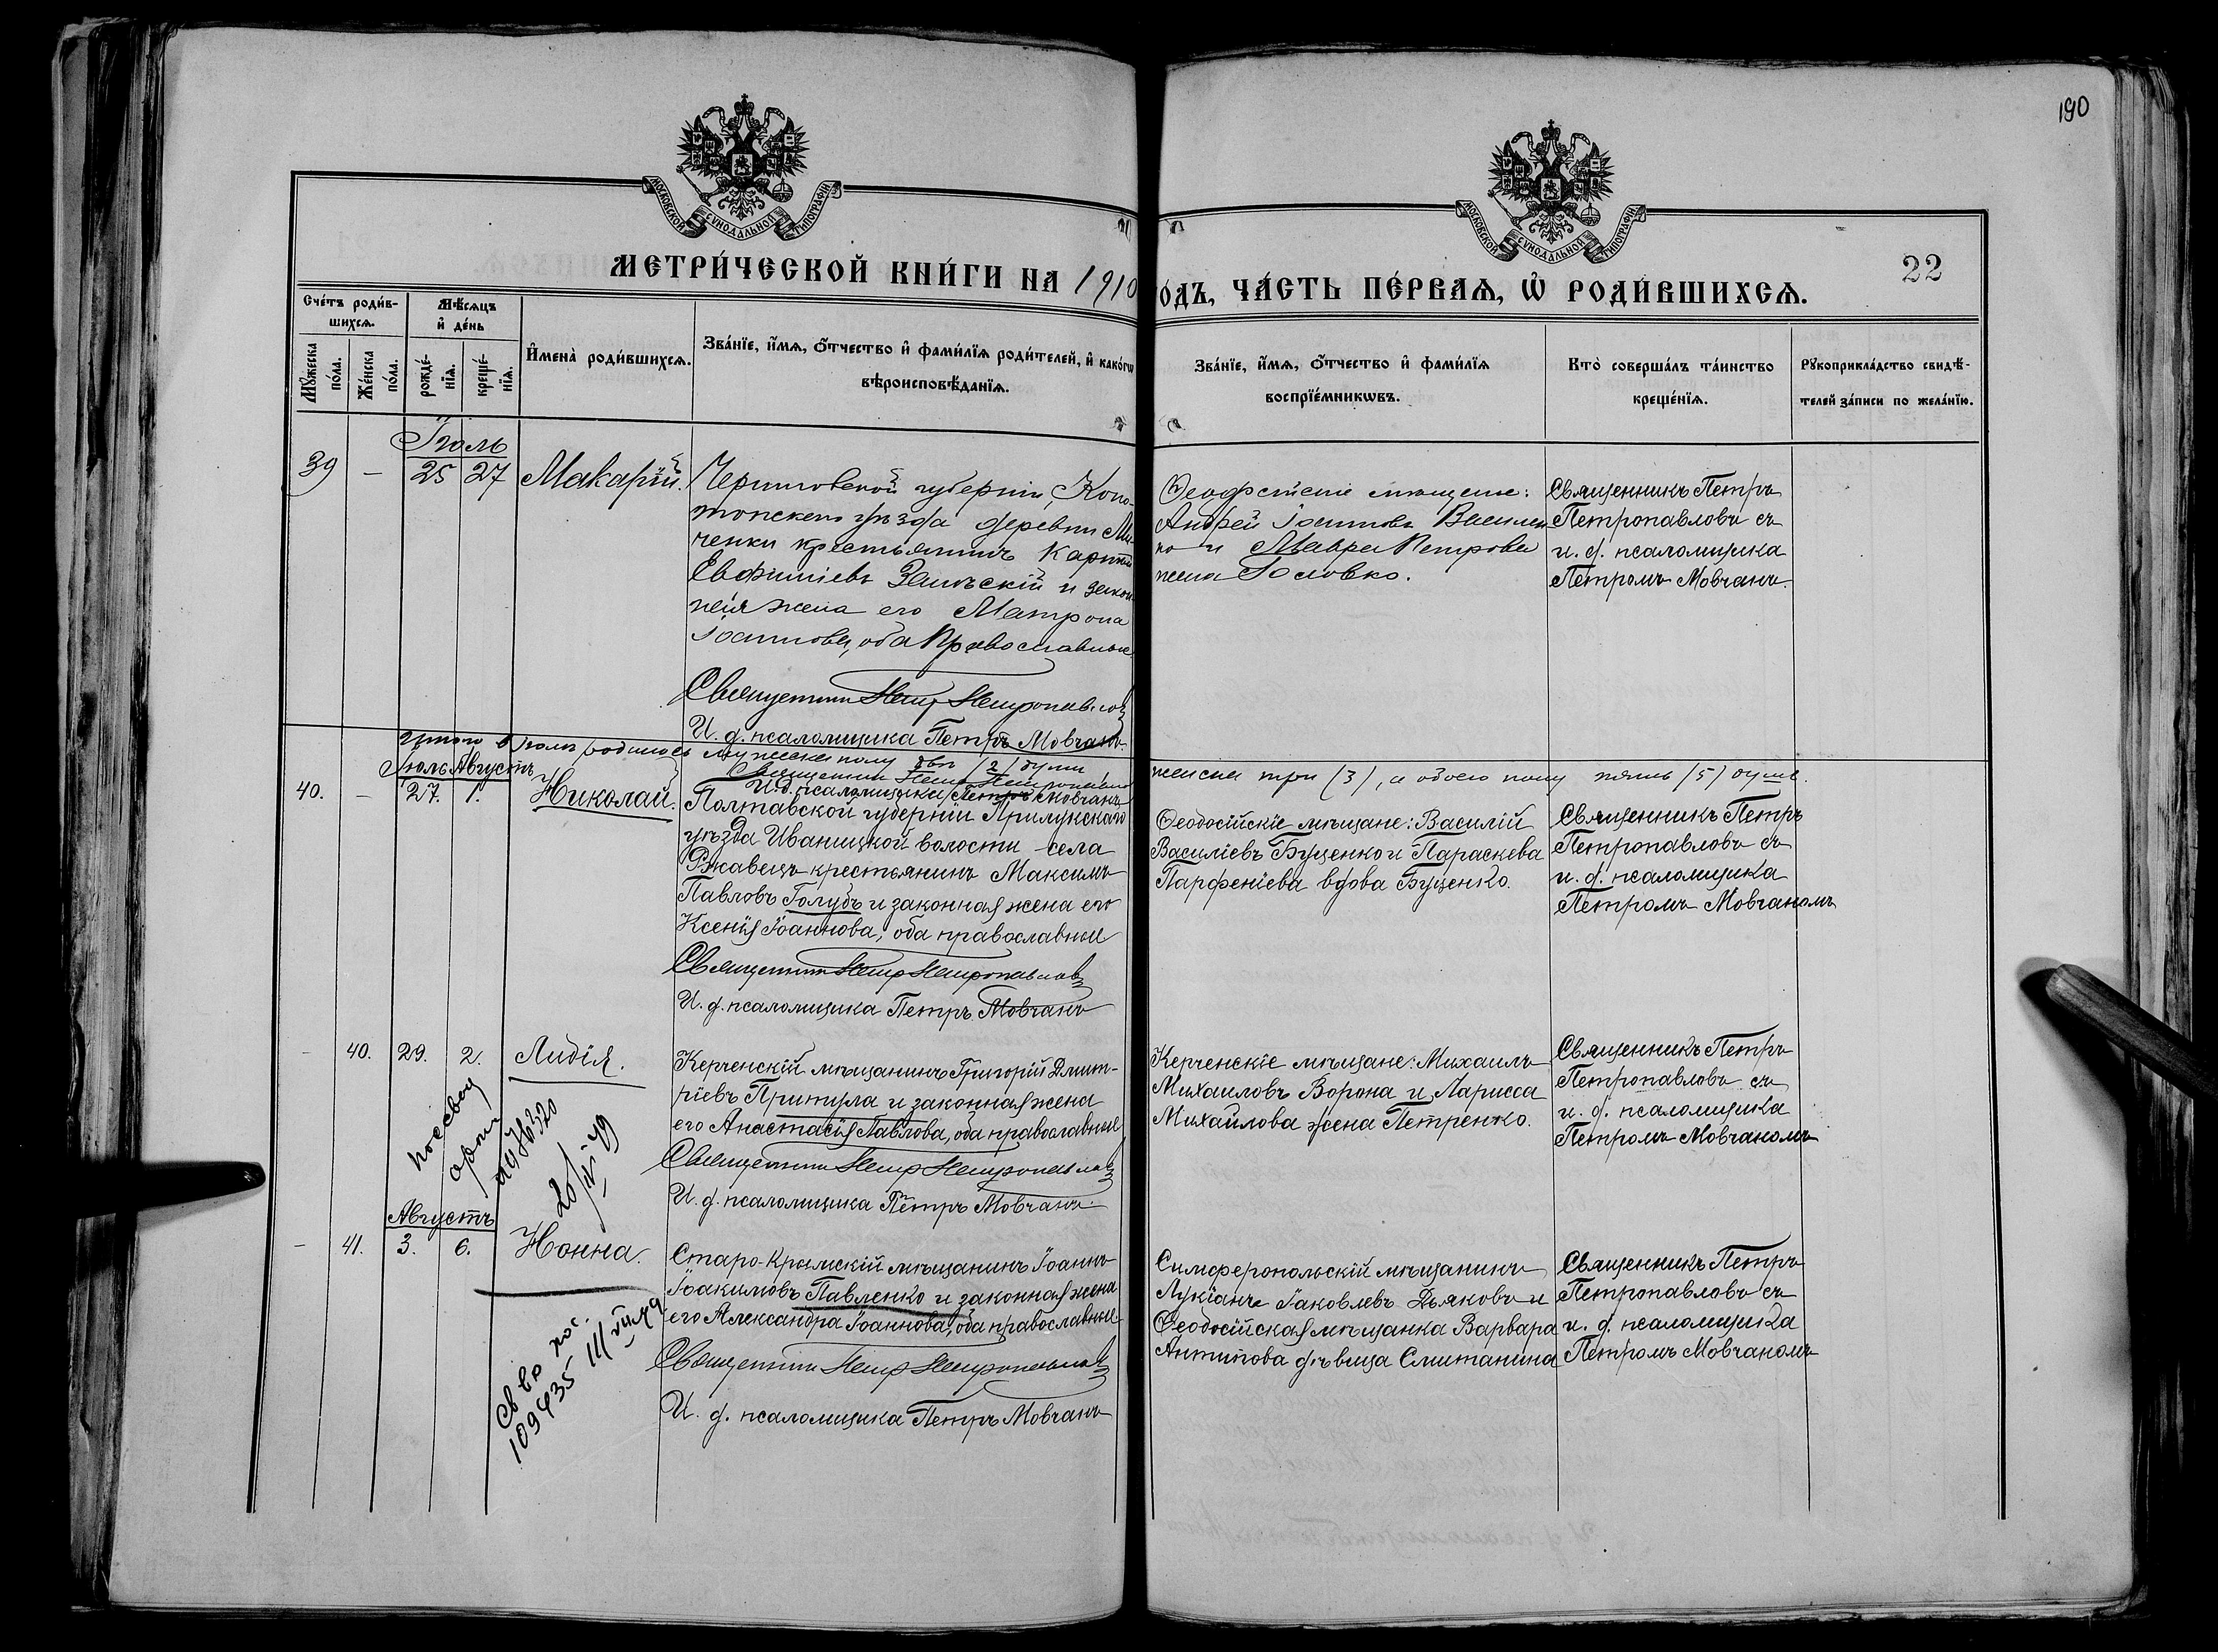 190
МОСКОВСКОЙ СѴНОДАЛЬНОЙ ТИПОГРАФІИ
МОСКОВСКОЙ СѴНОДАЛЬНОЙ ТИПОГРАФІИ
МЕТРИ́ЧЕСКОЙ КНИ́ГИ НА 1910
ОДЪ, ЧА́СТЬ ПЕ́РВАѦ, Ѽ РОДИ́ВШИХСѦ.
22
Сче́тъ роди́в-
шихсѧ.
Мѣ́сѧцъ
и҆ де́нь
Мꙋ́жеска
по́ла.
Же́нска
по́ла.
рожде́-
нїѧ.
креще́-
нїѧ.
И҆мена̀ роди́вшихсѧ.
Зва́нїе, и҆́мѧ, ѻ҆́тчество и҆ фами́лїѧ роди́телей, и҆ како́гѡ
вѣроисповѣ́данїѧ.
Зва́нїе, и҆́мѧ, ѻ҆́тчество и҆ фами́лїѧ
воспрїе́мникѡвъ.
Кто̀ соверша́лъ та́инство
креще́нїѧ.
Рꙋкоприкла́дство свидѣ́-
телей за́писи по жела́нїю.
Іюль
39 — 25 27 Макарій.
Черниговской губерніи, Коно-
топскаго уѣзда деревни Ми
ченки крестьянинъ
Евфиміевъ и закон
ная жена его Матрона
Іоаннова, оба Православные.
Священникъ Петръ Петропавловъ
И. д. псаломщика Петръ Мовчанъ.
Ѳеодосійскіе мѣщане:
Андрей Іоанновъ Василен
ко и Мавра Петрова
жена Головко.
Священникъ Петръ
Петропавловъ съ
и. д. псаломщика
Петромъ Мовчанъ.
Итого въ Іюлѣ родилось мужеска полу два (2) души,
женска три (3), а обоего полу пять (5) душъ.
Священникъ Петръ Петропавловъ
И. д. псаломщика Петръ Мовчанъ
Іюль Августъ
40. — 27. 1. Николай.
Полтавской губерніи Прилукскаго
уѣзда Иваницкой волости села
Ржавецъ крестьянинъ Максимъ
Павловъ Голубъ и законная жена его
Ксенія Іоаннова, оба православные
Священникъ Петръ Петропавловъ
И. д. псаломщика Петръ Мовчанъ
Ѳеодосійскіе мѣщане: Василій
Василіевъ Буценко и Параскева
Парфеніева вдова Буценко.
Священникъ Петръ
Петропавловъ съ
и. д. псаломщика
Петромъ Мовчаномъ
— 40. 29. 2. Лидія.
Керченскій мѣщанинъ Григорій Дмит-
ріевъ Притула и законная жена
его Анастасія Павлова, оба православные
Священникъ Петръ Петропавловъ
И. д. псаломщика Петръ Мовчанъ
Керченскіе мѣщане: Михаилъ
Михаиловъ Ворона и Ларисса
Михайлова жена Петренко.
Священникъ Петръ
Петропавловъ съ
и. д. псаломщика
Петромъ Мовчаномъ
Августъ
— 41. 3. 6. Нонна.
Старо-Крымскій мѣщанинъ Іоаннъ
Іоакимовъ Павленко и законная жена
его Александра Іоаннова, оба православные
Священникъ Петръ Петропавловъ
И. д. псаломщика Петръ Мовчанъ
Симферопольскій мѣщанинъ
Лукіанъ Іаковлевъ Дьяковъ и
Ѳеодосійская мѣщанка Варвара
Антипова дѣвица Смитанина
Священникъ Петръ
Петропавловъ съ
и. д. псаломщика
Петромъ Мовчаномъ